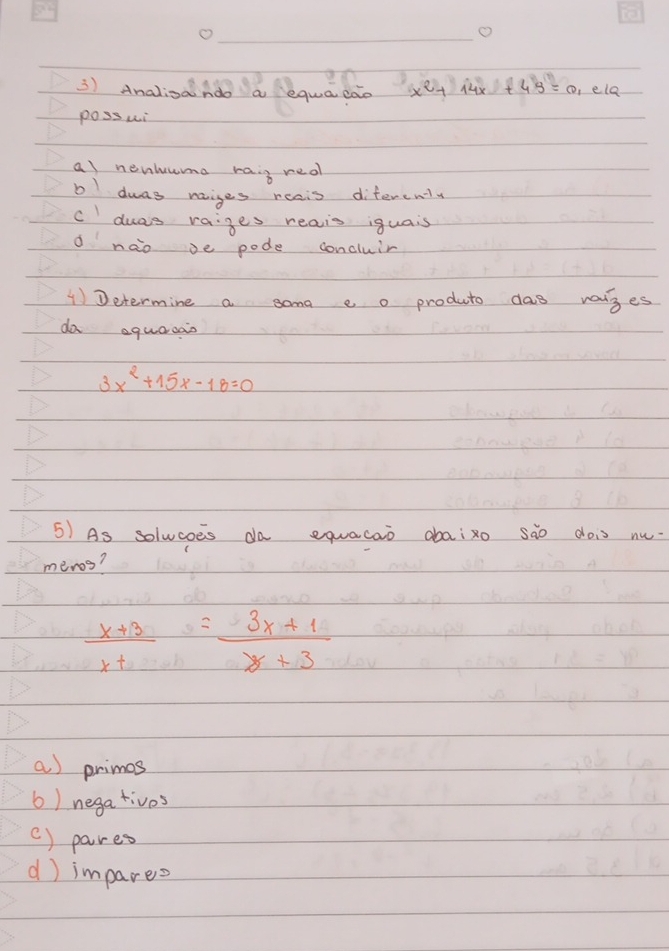 3) Analisando a equação x²+ 14x + 49 = 0, ela
possui
a) nenhuma raiz real
b) duas raizes reais diferents
c) duas raizes reais iguais
d) não se pode concluir
4) Determine a soma e o produto das raízes
da equação
3x²+15x-18=0
5) As soluções da equação abaixo são dois nu-
meros?
x+3 = 3x+1
x+ x+3
a) primos
b) negativos
c) pares
d) impares